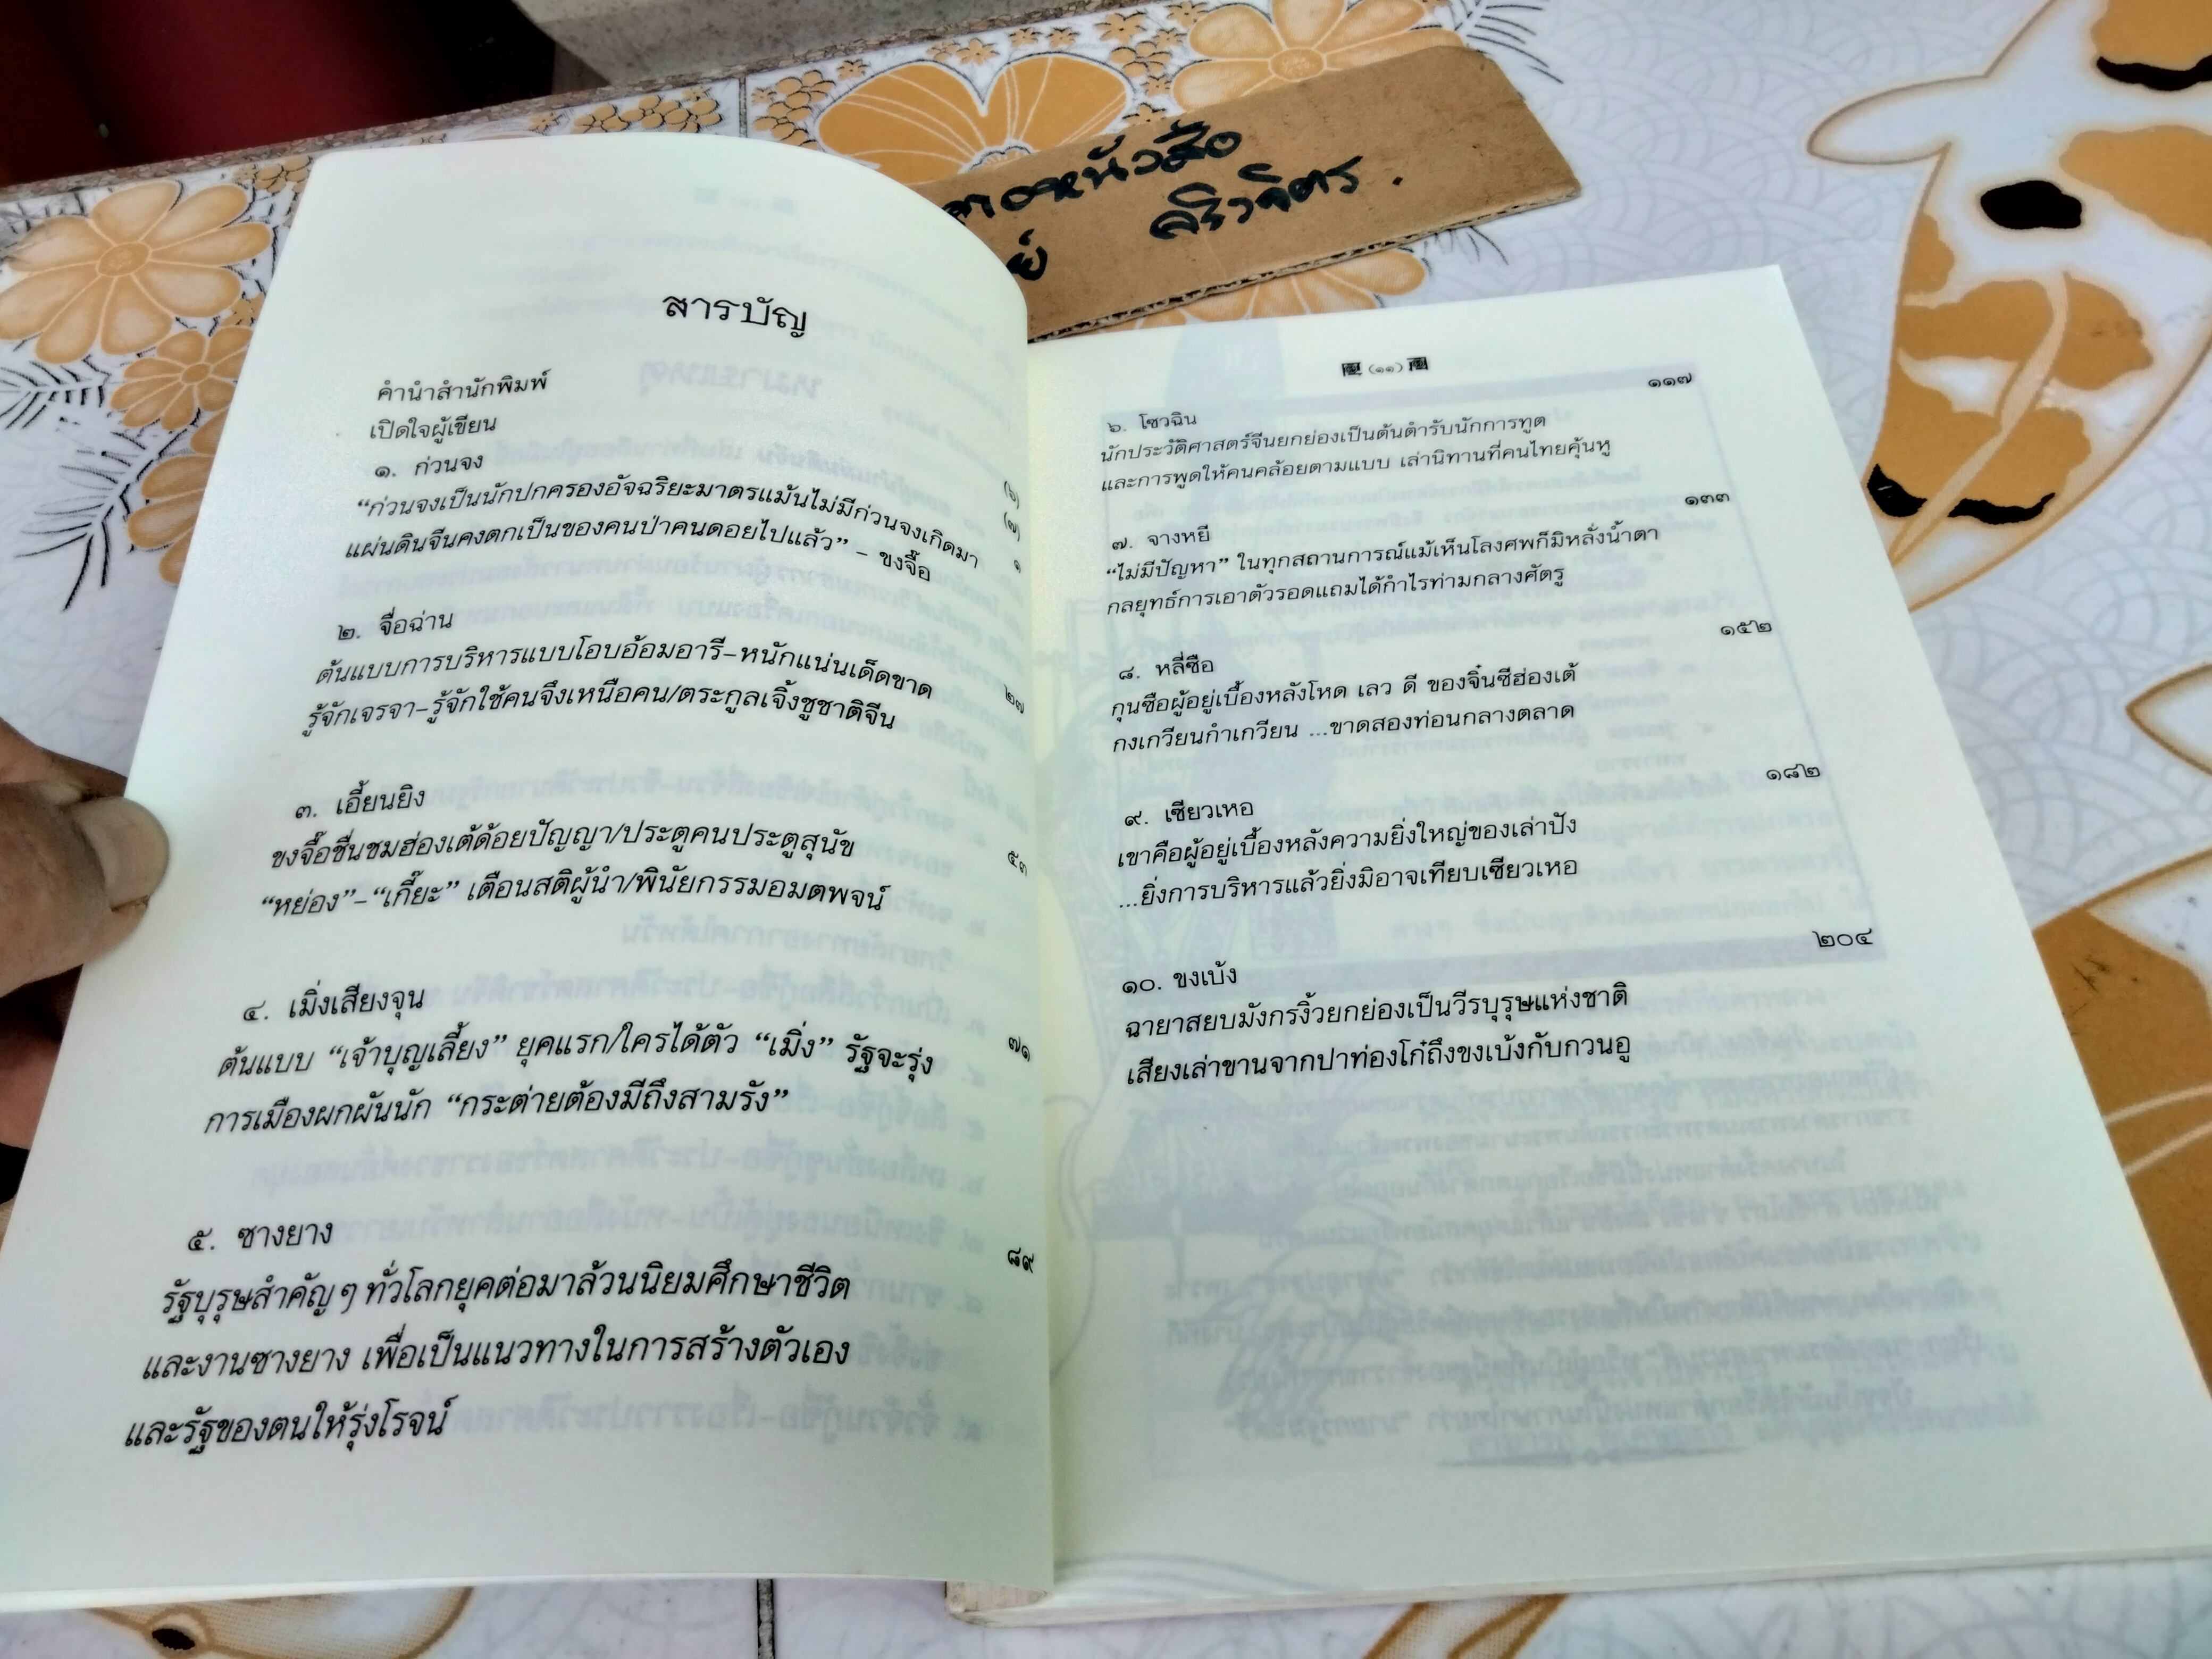 หนังสือ
ศิริวจิตร.
สารบัญ
คำนำสำนักพิมพ์ (๖)
เปิดใจผู้เขียน (๗)
๑. ก่วนจง ๑
“ก่วนจงเป็นนักปกครองอัจฉริยะมาตรแม้นไม่มีก่วนจงเกิดมา
แผ่นดินจีนคงตกเป็นของคนป่าคนดอยไปแล้ว” – ขงจื๊อ
๒. จื่อฉ่าน ๒๗
ต้นแบบการบริหารแบบโอบอ้อมอารี–หนักแน่นเด็ดขาด
รู้จักเจรจา–รู้จักใช้คนจึงเหนือคน/ตระกูลเจิ้งชูชาติจีน
๓. เอี้ยนยิง ๕๓
ขงจื๊อชื่นชมฮ่องเต้ด้อยปัญญา/ประตูคนประตูสุนัข
“หย่อง”–“เกี๊ยะ” เตือนสติผู้นำ/พินัยกรรมอมตพจน์
๔. เมิ่งเสียงจุน ๗๑
ต้นแบบ “เจ้าบุญเลี้ยง” ยุคแรก/ใครได้ตัว “เมิ่ง” รัฐจะรุ่ง
การเมืองผกผันนัก “กระต่ายต้องมีถึงสามรัง”
๕. ซางยาง ๘๙
รัฐบุรุษสำคัญๆ ทั่วโลกยุคต่อมาล้วนนิยมศึกษาชีวิต
และงานซางยาง เพื่อเป็นแนวทางในการสร้างตัวเอง
และรัฐของตนให้รุ่งโรจน์
(๑๑)
๖. โซวฉิน ๑๑๗
นักประวัติศาสตร์จีนยกย่องเป็นต้นตำรับนักการทูต
และการพูดให้คนคล้อยตามแบบ เล่านิทานที่คนไทยคุ้นหู
๗. จางหยี ๑๓๓
“ไม่มีปัญหา” ในทุกสถานการณ์แม้เห็นโลงศพก็มิหลั่งน้ำตา
กลยุทธ์การเอาตัวรอดแถมได้กำไรท่ามกลางศัตรู
๘. หลี่ซือ ๑๕๒
กุนซือผู้อยู่เบื้องหลังโหด เลว ดี ของจิ๋นซีฮ่องเต้
กงเกวียนกำเกวียน ...ขาดสองท่อนกลางตลาด
๙. เซียวเหอ ๑๘๒
เขาคือผู้อยู่เบื้องหลังความยิ่งใหญ่ของเล่าปัง
...ยิ่งการบริหารแล้วยิ่งมิอาจเทียบเซียวเหอ
๑๐. ขงเบ้ง ๒๐๔
ฉายาสยบมังกรงิ้วยกย่องเป็นวีรบุรุษแห่งชาติ
เสียงเล่าขานจากปาท่องโก๋ถึงขงเบ้งกับกวนอู